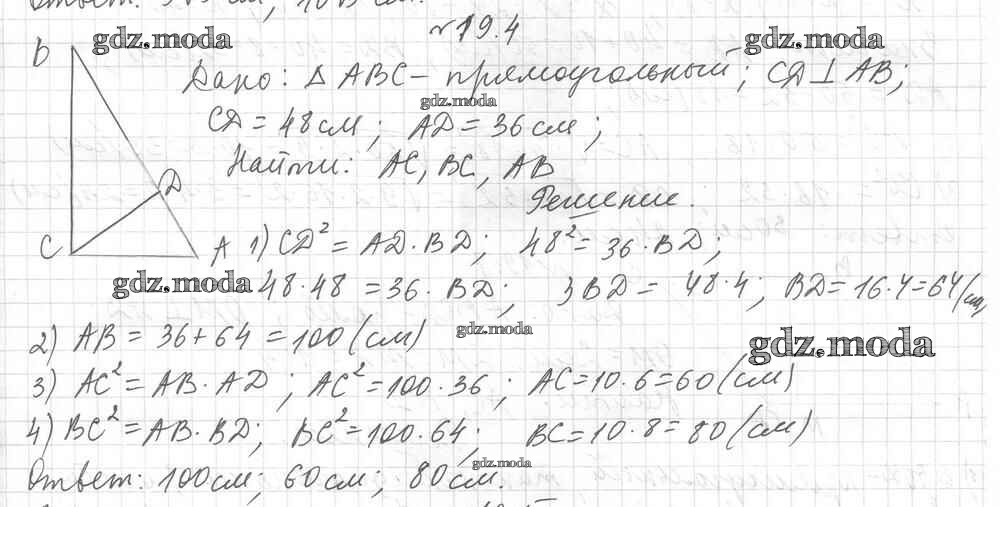 Ответ: см, см.
№19.4
B gdz.moda gdz.moda
Дано: △ ABC – прямоугольный; СД ⊥ AB;
gdz.moda
СД = 48 см; АД = 36 см;
Найти: AC, BC, AB
Д
Решение.
C A 1) СД² = АД · BД; 48² = 36 · BД;
gdz.moda 48·48 = 36 · BД; 3BД = 48·4; BД = 16·4=64(см)
2) AB = 36+64 = 100 (см) gdz.moda gdz.moda
3) AC² = AB · АД; AC² = 100·36; AC = 10·6 = 60 (см)
4) BC² = AB · BД; BC² = 100·64; BC = 10·8 = 80 (см)
gdz.moda
Ответ: 100см; 60см; 80см.